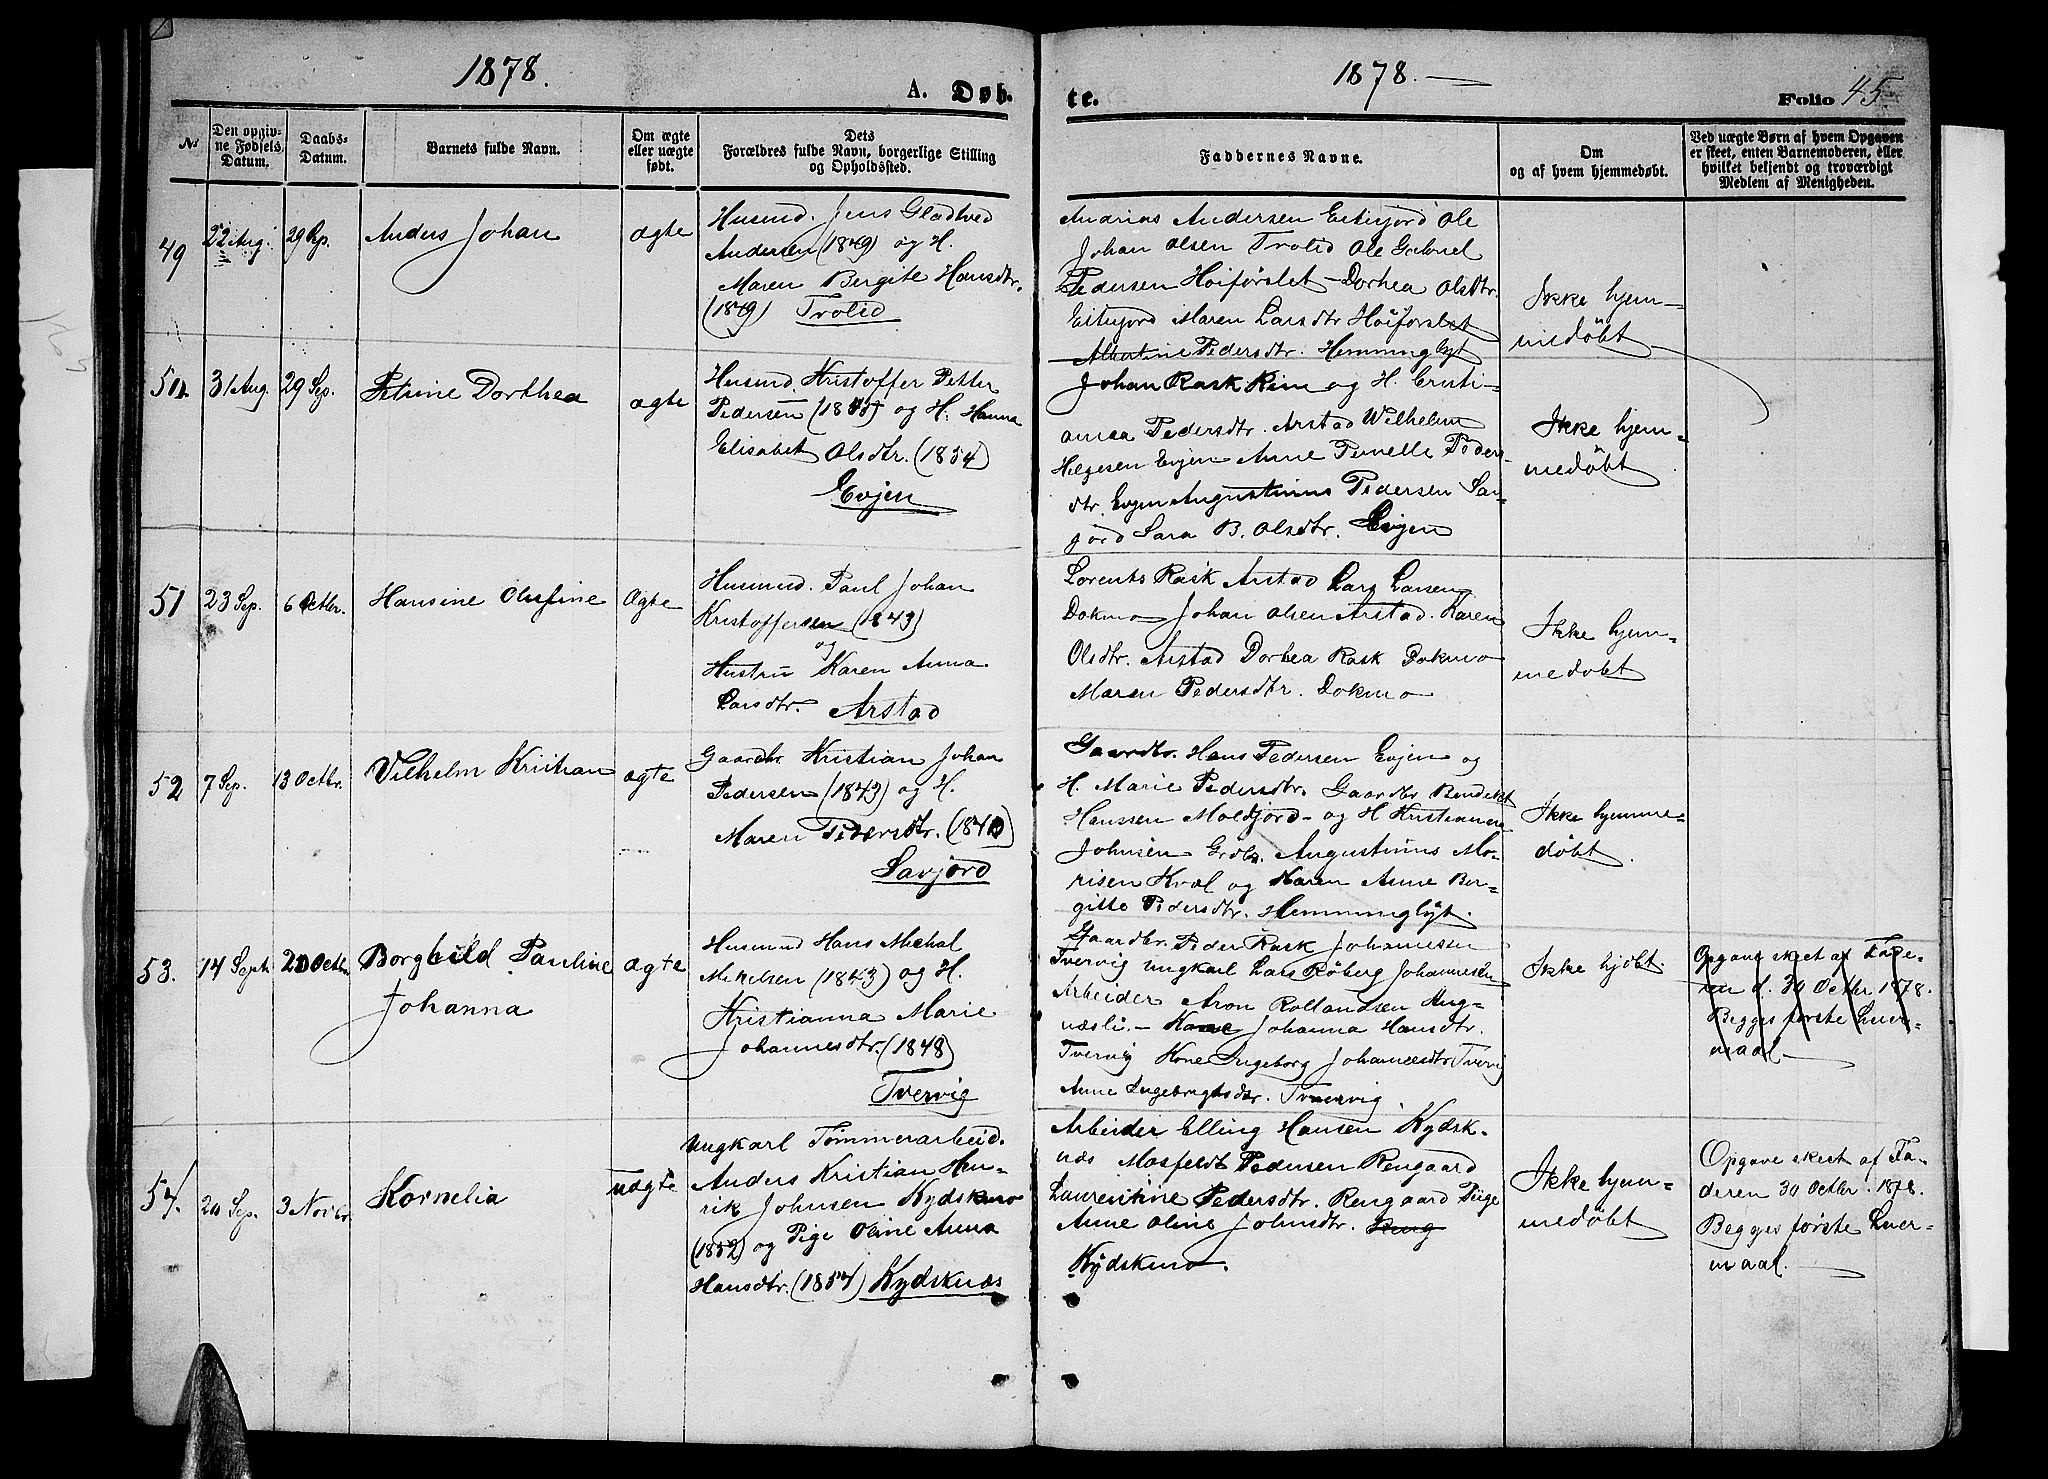 1878.
A. Døb-
te.
1878.
Folio 45
№
Den opgiv-
ne Fødsels
Datum.
Daabs-
Datum.
Barnets fulde Navn.
Om ægte
eller uægte
født.
Dets
Forældres fulde Navn, borgerlige Stilling
og Opholdssted.
Faddernes Navne.
Om
og af hvem hjemmedøbt.
Ved uægte Børn af hvem Opgaven
er skeet, enten Barnemoderen, eller
hvilket bekjendt og troværdigt
Medlem af Menigheden.
49
22 Aug.
29 Sp.
Anders Johan
ægte
Husmd. Jens Gladtved
Andersen (1849) og H.
Maren Bergite Hansdtr.
(1849) Trolid
Andrias Andersen Eitefjord Ole
Johan Olsen Trolid Ole Gabriel
Pedersen Høiforslet Dorhea Olsdtr.
Eitefjord Maren Larsdtr Høiforslet
Albertine Pedersdtr. Hemminglyt
Ikke hjem-
medøbt
50.
31 Aug.
29 Sep.
Petrine Dorthea
ægte
Husmd. Kristoffer Petter
Pedersen og H. Hanna
Elisabet Olsdtr. (1854)
Evjen
Johan Rask Rim og H. Ersti-
amea Pedersdtr. Arstad Wilhelm
Helgesen Evjen Anne Pernelle Peders-
dtr. Evjen Augustinus Pedersen Sav-
jord Sara B. Olsdtr. Evjen
Ikke hjem-
medøbt
51
23 Sep.
6 Octbr.
Hansine Olufine
ægte
Husmd. Paul Johan
Kristoffersen (1843)
og
Hustru Karen Anna
Larsdtr. Arstad
Lorents Rask Arstad Lars Larsen
Dokmo Johan Olsen Arstad. Karen
Olsdtr. Arstad Dorhea Rask Dokmo
Maren Pedersdtr. Dokmo
Ikke hjem-
medøbt
52
7 Sep.
13 Octbr.
Vilhelm Kristian
ægte
Gaardbr. Kristian Johan
Pedersen (1843) og H.
Maren Pedersdtr. (1840)
Savjord
Gaardbr. Hans Pedersen Evjen og
H. Marie Pedersdtr. Gaardbr Bendikt
Hanssen Moldjord og H Kristianna
Johnsen Augustinus Mo-
risen Kvæl og Karen Anne Ber-
gitte Pedersdtr. Hemminglyt.
Ikke hjemme-
døbt.
53.
14 Septr
20 Octbr
Borghild Pauline
Johanna
ægte
Husmd Hans Michal
Mikelsen (1843) og H.
Kristianna Marie
Johannesdtr. (1848)
Tvervig
Gaardbr. Peder Rask Johannesen
Tvervig Ungkarl Lars Röberg Johannesen
Arbeider Aron Rollandsen Aug-
næsli. - Kone Johanna Hansdtr.
Tvervig Kone Ingeborg Johannesdtr Tvervig
Anne Ingebrigtsdtr. Tvervig.
Ikke hjdøbt.
Opgave skeet af Fade-
ren d. 30 Octbr 1878.
Begges første Leier-
maal.
54.
20 Sep.
3 Novbr
Kornelia
uægte
Ungkarl Tømmerarbeid.
Anders Kristian Hen-
rik Johnsen Kydskmo
(1852) og Pige Oline Anna
Hansdtr. (1854) Kydsknæs
Arbeider Elling Hansen Kydsk-
næs Mosfeldt Pedersen Rengaard
Laurentine Pedersdtr. Rengaard Pige
Anne Oline Johnsdtr. Reng
Kydskmo.
Ikke hjem-
medøbt
Opgave skeet af Fa-
deren 30 Octbr. 1878.
Begges første Leier-
maal.